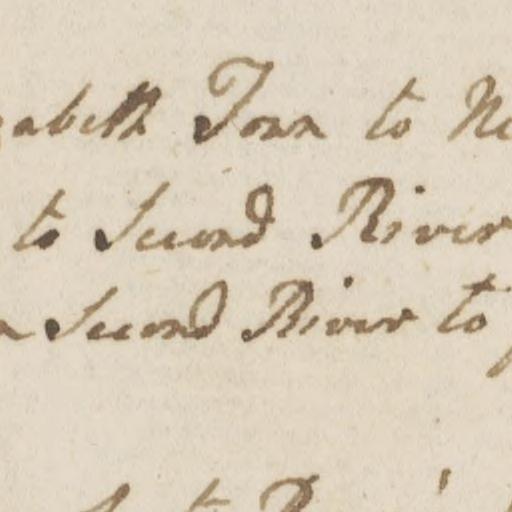 zabeth Town to Ne
to Second River
n Second River to